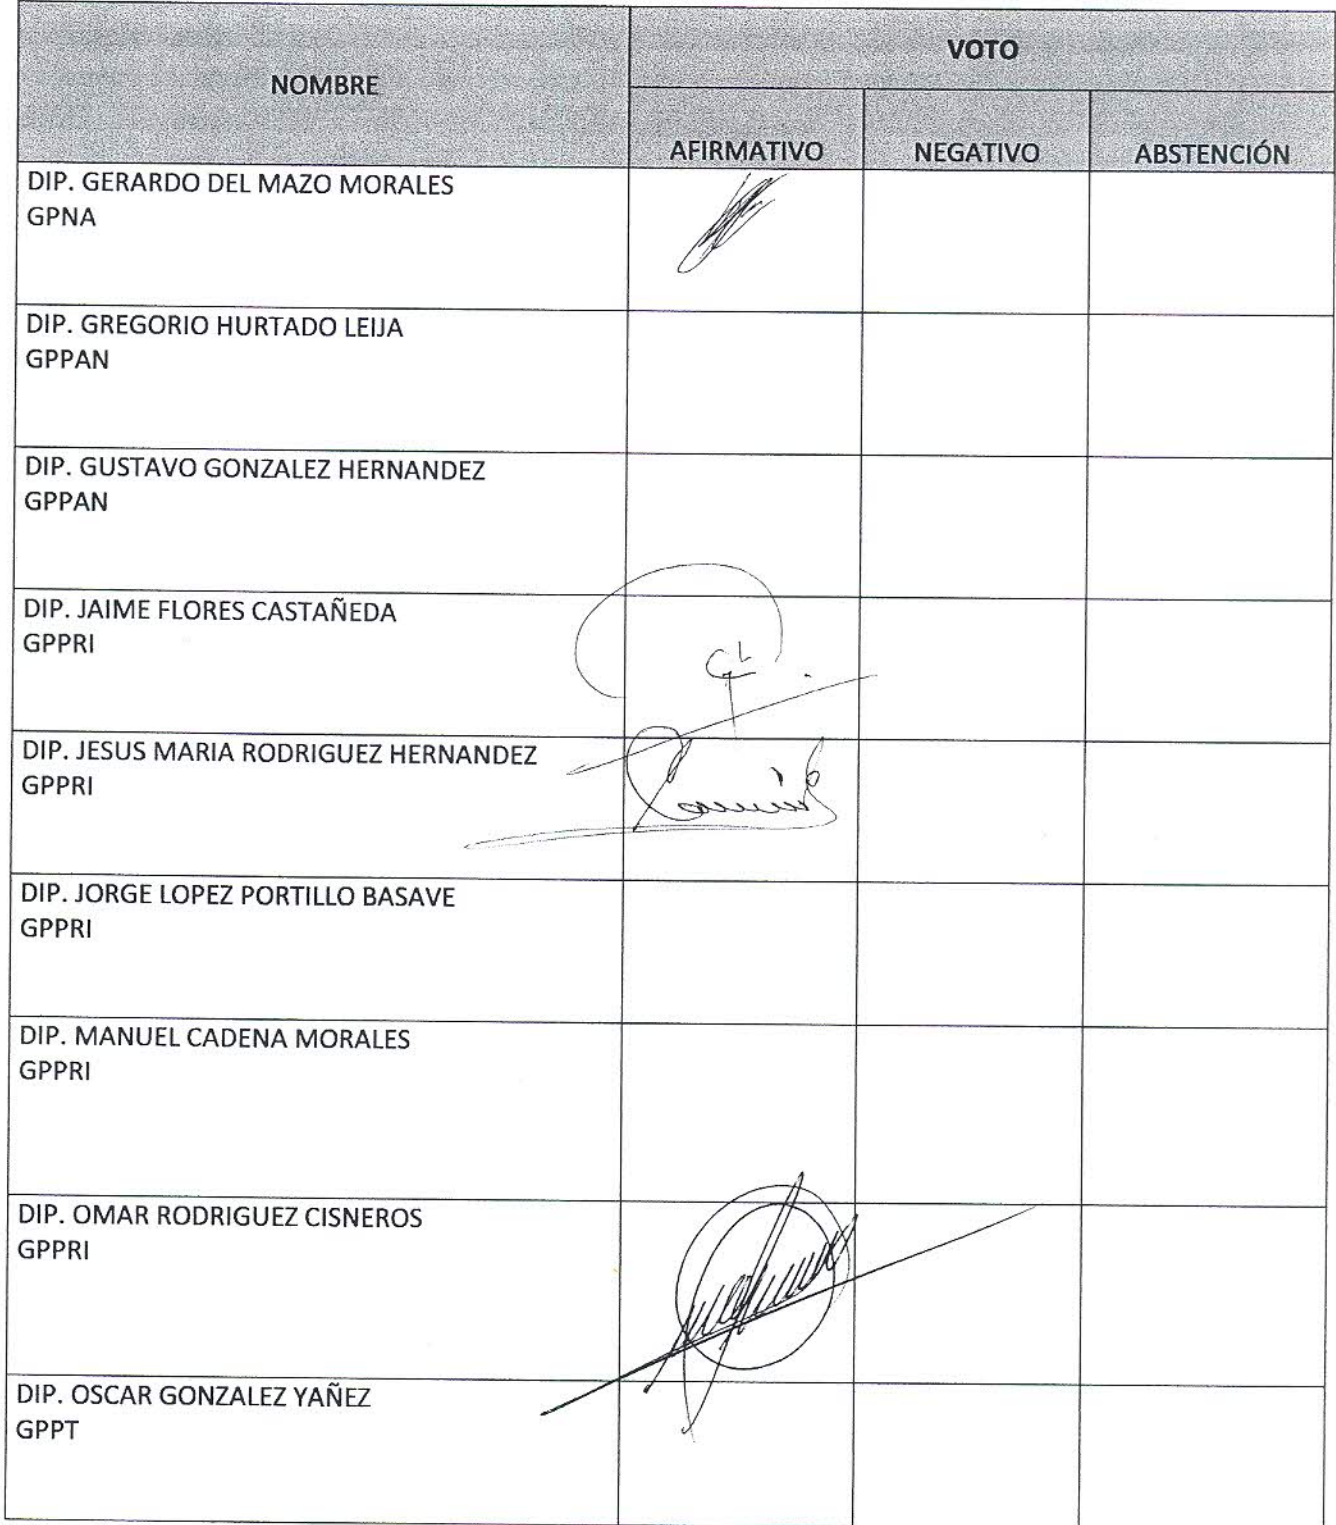 NOMBRE
VOTO
AFIRMATIVO
NEGATIVO
ABSTENCIÓN
DIP. GERARDO DEL MAZO MORALES
GPNA
DIP. GREGORIO HURTADO LEIJA
GPPAN
DIP. GUSTAVO GONZALEZ HERNANDEZ
GPPAN
DIP. JAIME FLORES CASTAÑEDA
GPPRI
DIP. JESUS MARIA RODRIGUEZ HERNANDEZ
GPPRI
DIP. JORGE LOPEZ PORTILLO BASAVE
GPPRI
DIP. MANUEL CADENA MORALES
GPPRI
DIP. OMAR RODRIGUEZ CISNEROS
GPPRI
DIP. OSCAR GONZALEZ YAÑEZ
GPPT